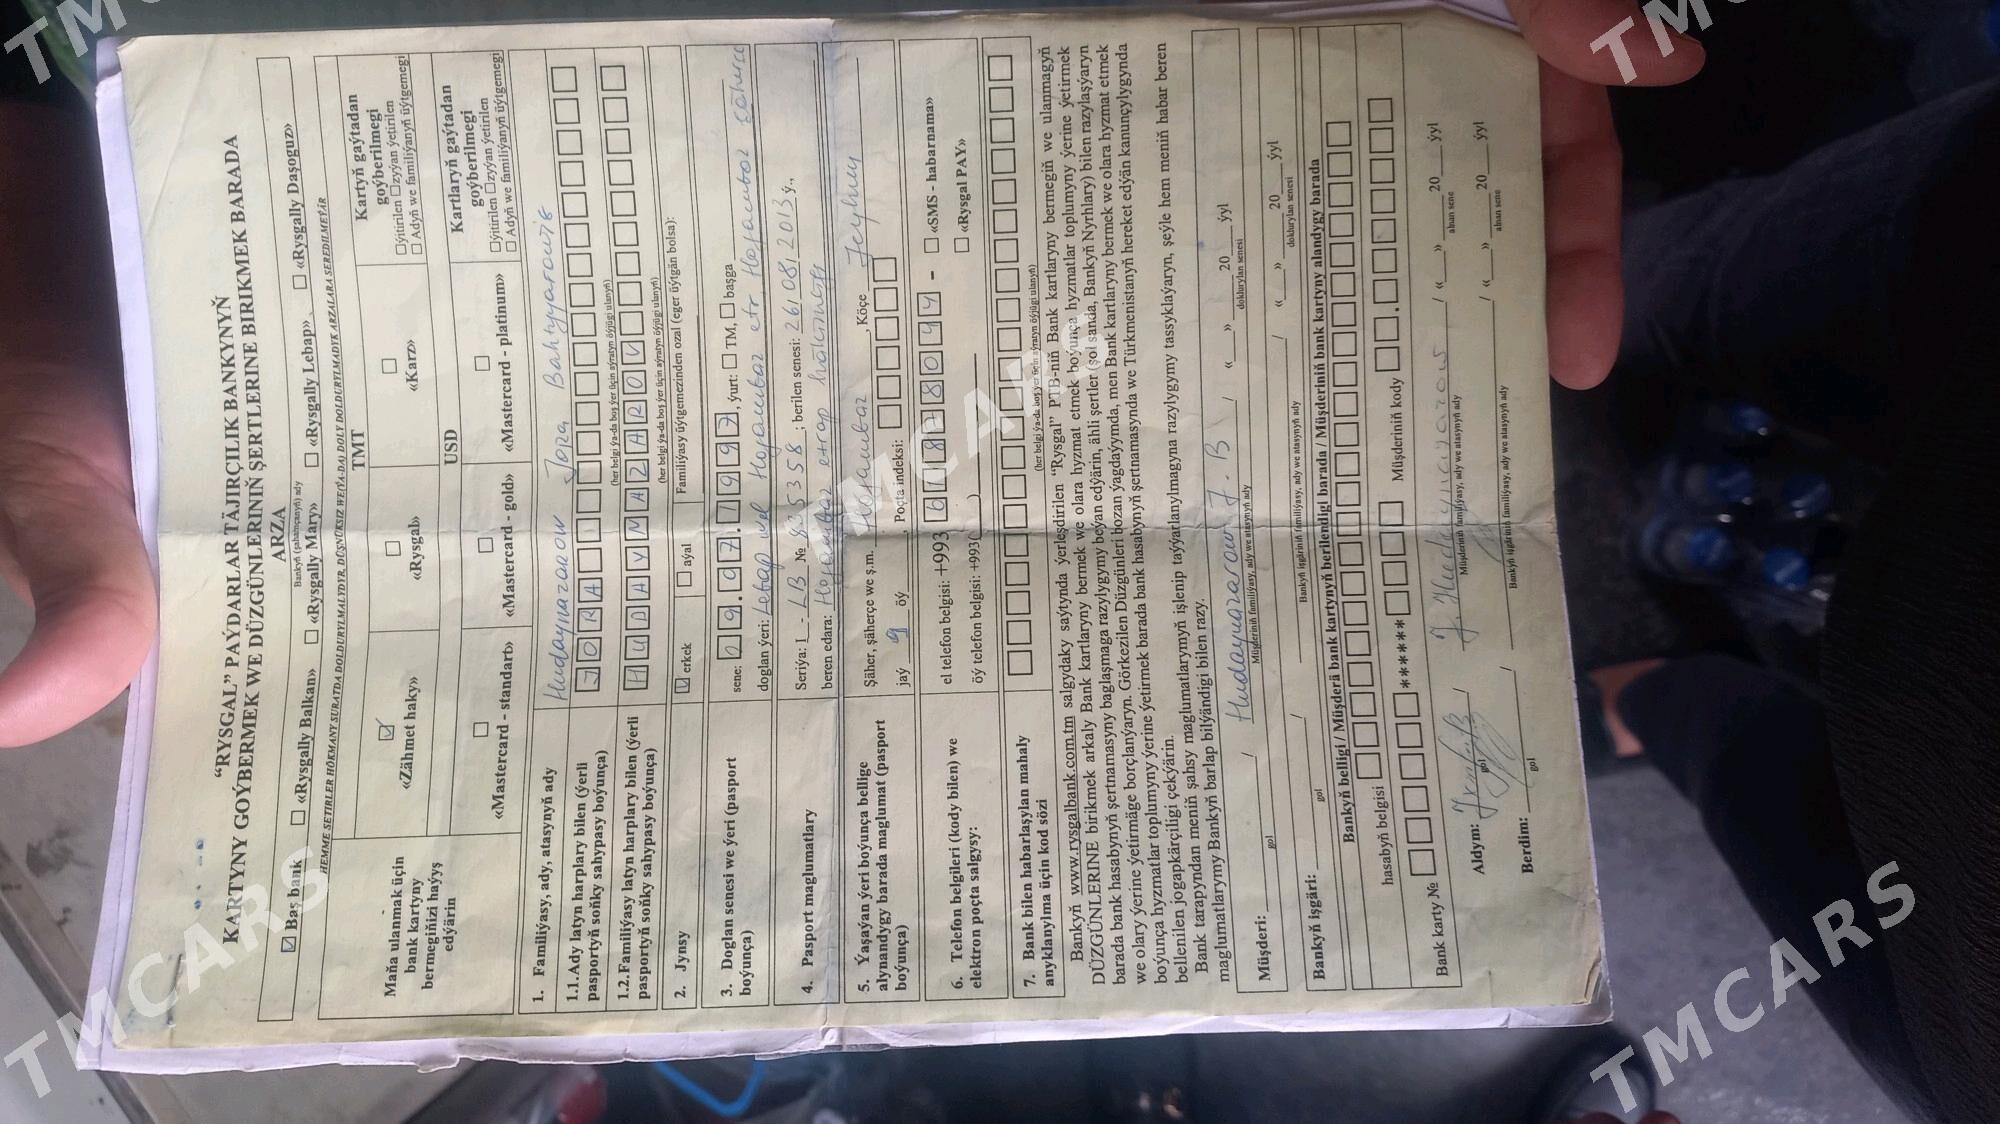 “RYSGAL” PAÝDARLAR TÄJIRÇILIK BANKYNYŇ
KARTYNY GOÝBERMEK WE DÜZGÜNLERINIŇ ŞERTLERINE BIRIKMEK BARADA
ARZA
☑ Baş bank ☐ «Rysgally Balkan» ☐ «Rysgally Mary» ☐ «Rysgally Lebap» ☐ «Rysgally Daşoguz»
Bankyň (şahamçanyň) ady
HEMME SETIRLER HÖKMANY SURATDA DOLDURYLMALYDYR, DÜŞNÜKSIZ WE(ÝA-DA) DOLY DOLDURYLMADYK ARZALARA SEREDILMEÝÄR
Maňa ulanmak üçin bank kartyny bermegiňizi haýyş edýärin
TMT
☑ «Zähmet haky» ☐ «Rysgal» ☐ «Karz»
Kartyň gaýtadan goýberilmegi
☐ ýitirilen ☐ zyýan ýetirilen
☐ Adyň we familiýanyň üýtgemegi
USD
☐ «Mastercard - standart» ☐ «Mastercard - gold» ☐ «Mastercard - platinum»
Kartlaryň gaýtadan goýberilmegi
☐ ýitirilen ☐ zyýan ýetirilen
☐ Adyň we familiýanyň üýtgemegi
1. Familiýasy, ady, atasynyň ady Hudaynazarow Jora Bahtyyarowiç
1.1.Ady latyn harplary bilen (ýerli pasportyň soňky sahypasy boýunça) JORA
(her belgi ýa-da boş ýer üçin aýratyn öýjügi ulanyň)
1.2.Familiýasy latyn harplary bilen (ýerli pasportyň soňky sahypasy boýunça) HUDAYNAZAROV
(her belgi ýa-da boş ýer üçin aýratyn öýjügi ulanyň)
2. Jynsy ☑ erkek ☐ aýal Familiýasy üýtgemezinden ozal (eger üýtgän bolsa):
3. Doglan senesi we ýeri (pasport boýunça) sene: 09.07.1997, ýurt: ☐ TM, ☐ başga
doglan ýeri: Lebap wel Hojambaz etr. Hojambaz şäherçe
4. Pasport maglumatlary Seriýa: I - LB № 835358; berilen senesi: 26/08/2013 ý.,
beren edara: Hojambaz etrap häkimligi
5. Ýaşaýan ýeri boýunça bellige alynandygy barada maglumat (pasport boýunça) Şäher, şäherçe we ş.m. Hojambaz, Köçe Jeyhun
jaý 9 öý , Poçta indeksi:
6. Telefon belgileri (kody bilen) we elektron poçta salgysy: el telefon belgisi: +993 61878094 - ☐ «SMS - habarnama»
öý telefon belgisi: +993( ) ☐ «Rysgal PAY»
7. Bank bilen habarlaşylan mahaly anyklanylma üçin kod sözi
(her belgi ýa-da boş ýer üçin aýratyn öýjügi ulanyň)
Bankyň www.rysgalbank.com.tm salgydaky saýtynda ýerleşdirilen “Rysgal” PTB-niň Bank kartlaryny bermegiň we ulanmagyň
DÜZGÜNLERINE birikmek arkaly Bank kartlaryny bermek we olara hyzmat etmek boýunça hyzmatlar toplumyny ýerine ýetirmek
barada bank hasabynyň şertnamasyny baglaşmaga razylygymy beýan edýärin, ähli şertler (şol sanda, Bankyň Nyrhlary) bilen razylaşýaryn
we olary ýerine ýetirmäge borçlanýaryn. Görkezilen Düzgünleri bozan ýagdaýymda, men Bank kartlaryny bermek we olara hyzmat etmek
boýunça hyzmatlar toplumyny ýerine ýetirmek barada bank hasabynyň şertnamasynda we Türkmenistanyň hereket edýän kanunçylygynda
bellenilen jogapkärçiligi çekýärin.
Bank tarapyndan meniň şahsy maglumatlarymyň işlenip taýýarlanylmagyna razylygymy tassyklaýaryn, şeýle hem meniň habar beren
maglumatlarymy Bankyň barlap bilýändigi bilen razy.
Müşderi: / Hudaynazarow J. B / « » 20 ýyl
gol Müşderiniň familiýasy, ady we atasynyň ady doldurylan senesi
Bankyň işgäri: / / « » 20 ýyl
gol Bankyň işgäriniň familiýasy, ady we atasynyň ady doldurylan senesi
Bankyň belligi / Müşderä bank kartynyň berilendigi barada / Müşderiniň bank kartyny alandygy barada
hasabyň belgisi
Bank karty № ****** Müşderiniň kody
Aldym: / J. Hudaynazarow / « » 20 ýyl
gol Müşderiniň familiýasy, ady we atasynyň ady alnan sene
Berdim: / / « » 20 ýyl
gol Bankyň işgäriniň familiýasy, ady we atasynyň ady alnan sene
TMCARS
TMCARS
TMCARS